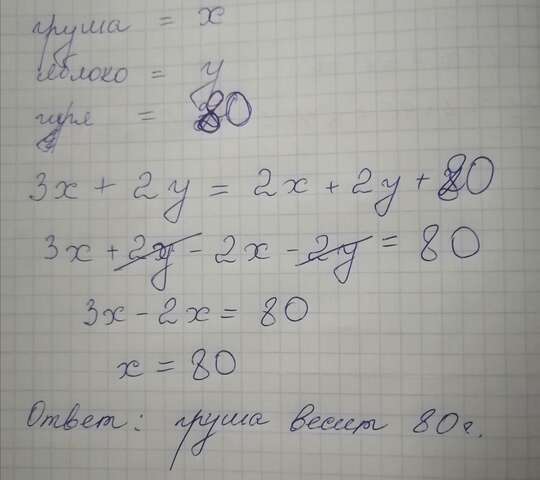 груша = x
яблоко = y
гиря = 80
3x + 2y = 2x + 2y + 80
3x + 2y - 2x - 2y = 80
3x - 2x = 80
x = 80
Ответ: груша весит 80г.